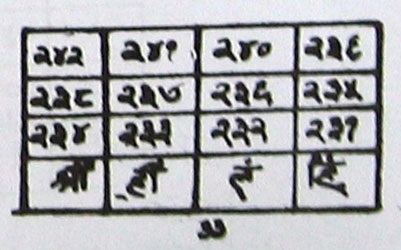 २४२ २४१ २४० २३९
२३८ २३७ २३६ २३५
२३४ २३३ २३२ २३१
श्रीं ह्रीं